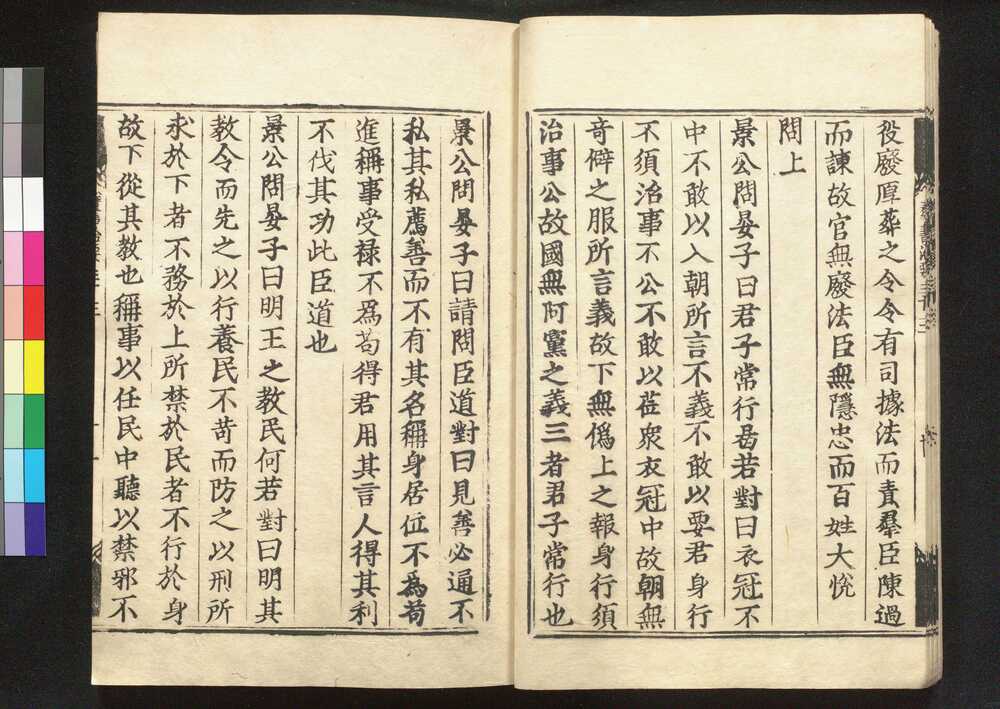 役廢厚葬之令令有司據法而責羣臣陳過
而諫故官無廢法臣無隱忠而百姓大恱
問上
景公問晏子曰君子常行曷若對曰衣冠不
中不敢以入朝所言不義不敢以要君身行
不須治事不公不敢以莅衆衣冠中故朝無
奇僻之服所言義故下無僞上之報身行須
治事公故國無阿黨之義三者君子常行也
景公問晏子曰請問臣道對曰見善必通不
私其私薦善而不有其名稱身居位不為苟
進稱事受禄不爲苟得君用其言人得其利
不伐其功此臣道也
景公問晏子曰明王之教民何若對曰明其
教令而先之以行養民不苛而防之以刑所
求於下者不務於上所禁於民者不行於身
故下從其教也稱事以任民中聽以禁邪不